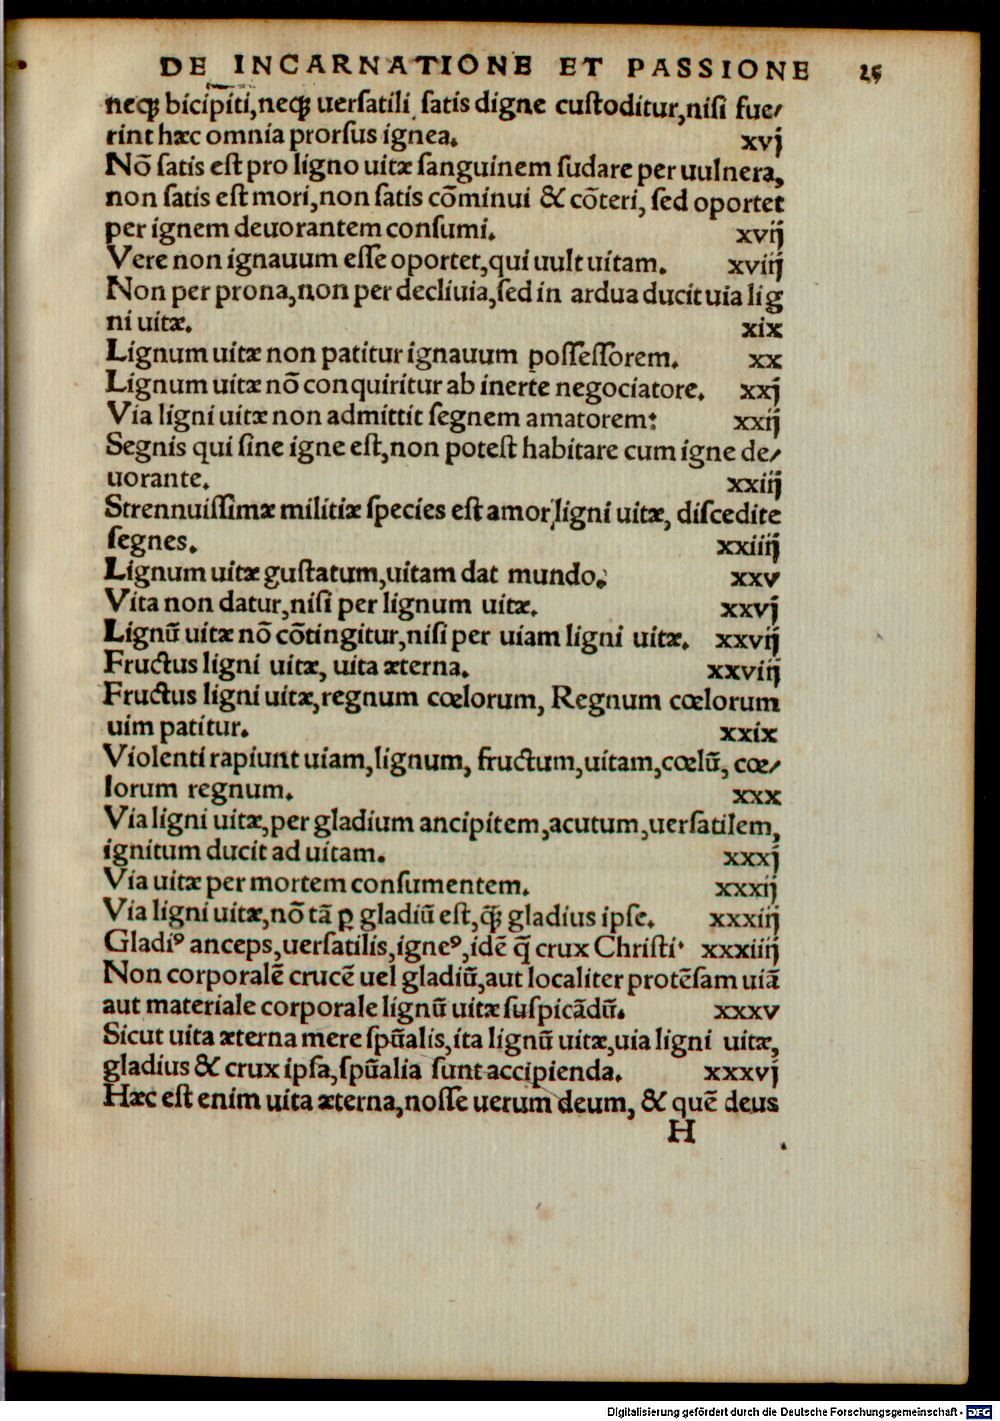 DE INCARNATIONE ET PASSIONE 25
neqꝫ bicipiti,neqꝫ uerſatili ſatis digne cuſtoditur,niſi fue⸗
rint hæc omnia prorſus ignea. xvj
Nõ ſatis eſt pro ligno uitæ ſanguinem ſudare per uulnera,
non ſatis eſt mori,non ſatis cõminui & cõteri, ſed oportet
per ignem deuorantem conſumi. xvij
Vere non ignauum eſſe oportet,qui uult uitam. xviij
Non per prona,non per decliuia,ſed in ardua ducit uia lig
ni uitæ. xix
Lignum uitæ non patitur ignauum poſſeſſorem. xx
Lignum uitæ nõ conquiritur ab inerte negociatore. xxj
Via ligni uitæ non admittit ſegnem amatorem: xxij
Segnis qui ſine igne eſt,non poteſt habitare cum igne de⸗
uorante. xxiij
Strennuiſſimæ militiæ ſpecies eſt amor ligni uitæ, diſcedite
ſegnes. xxiiij
Lignum uitæ guſtatum,uitam dat mundo. xxv
Vita non datur,niſi per lignum uitæ. xxvj
Lignũ uitæ nõ cõtingitur,niſi per uiam ligni uitæ. xxvij
Fructus ligni uitæ, uita æterna. xxviij
Fructus ligni uitæ,regnum cœlorum, Regnum cœlorum
uim patitur. xxix
Violenti rapiunt uiam,lignum, fructum,uitam,cœlũ, cœ⸗
lorum regnum. xxx
Via ligni uitæ,per gladium ancipitem,acutum,uerſatilem,
ignitum ducit ad uitam. xxxj
Via uitæ per mortem conſumentem. xxxij
Via ligni uitæ,nõ tã ꝑ gladiũ eſt,q̃ꝫ gladius ipſe. xxxiij
Gladiꝰ anceps,uerſatilis,igneꝰ,idẽ q̃ crux Chriſti. xxxiiij
Non corporalẽ crucẽ uel gladiũ,aut localiter protẽſam uiã
aut materiale corporale lignũ uitæ ſuſpicãdũ. xxxv
Sicut uita æterna mere ſpũalis,ita lignũ uitæ,uia ligni uitæ,
gladius & crux ipſa,ſpũalia ſunt accipienda. xxxvj
Hæc eſt enim uita æterna,noſſe uerum deum, & quẽ deus
H
Digitalisierung gefördert durch die Deutsche Forschungsgemeinschaft - DFG